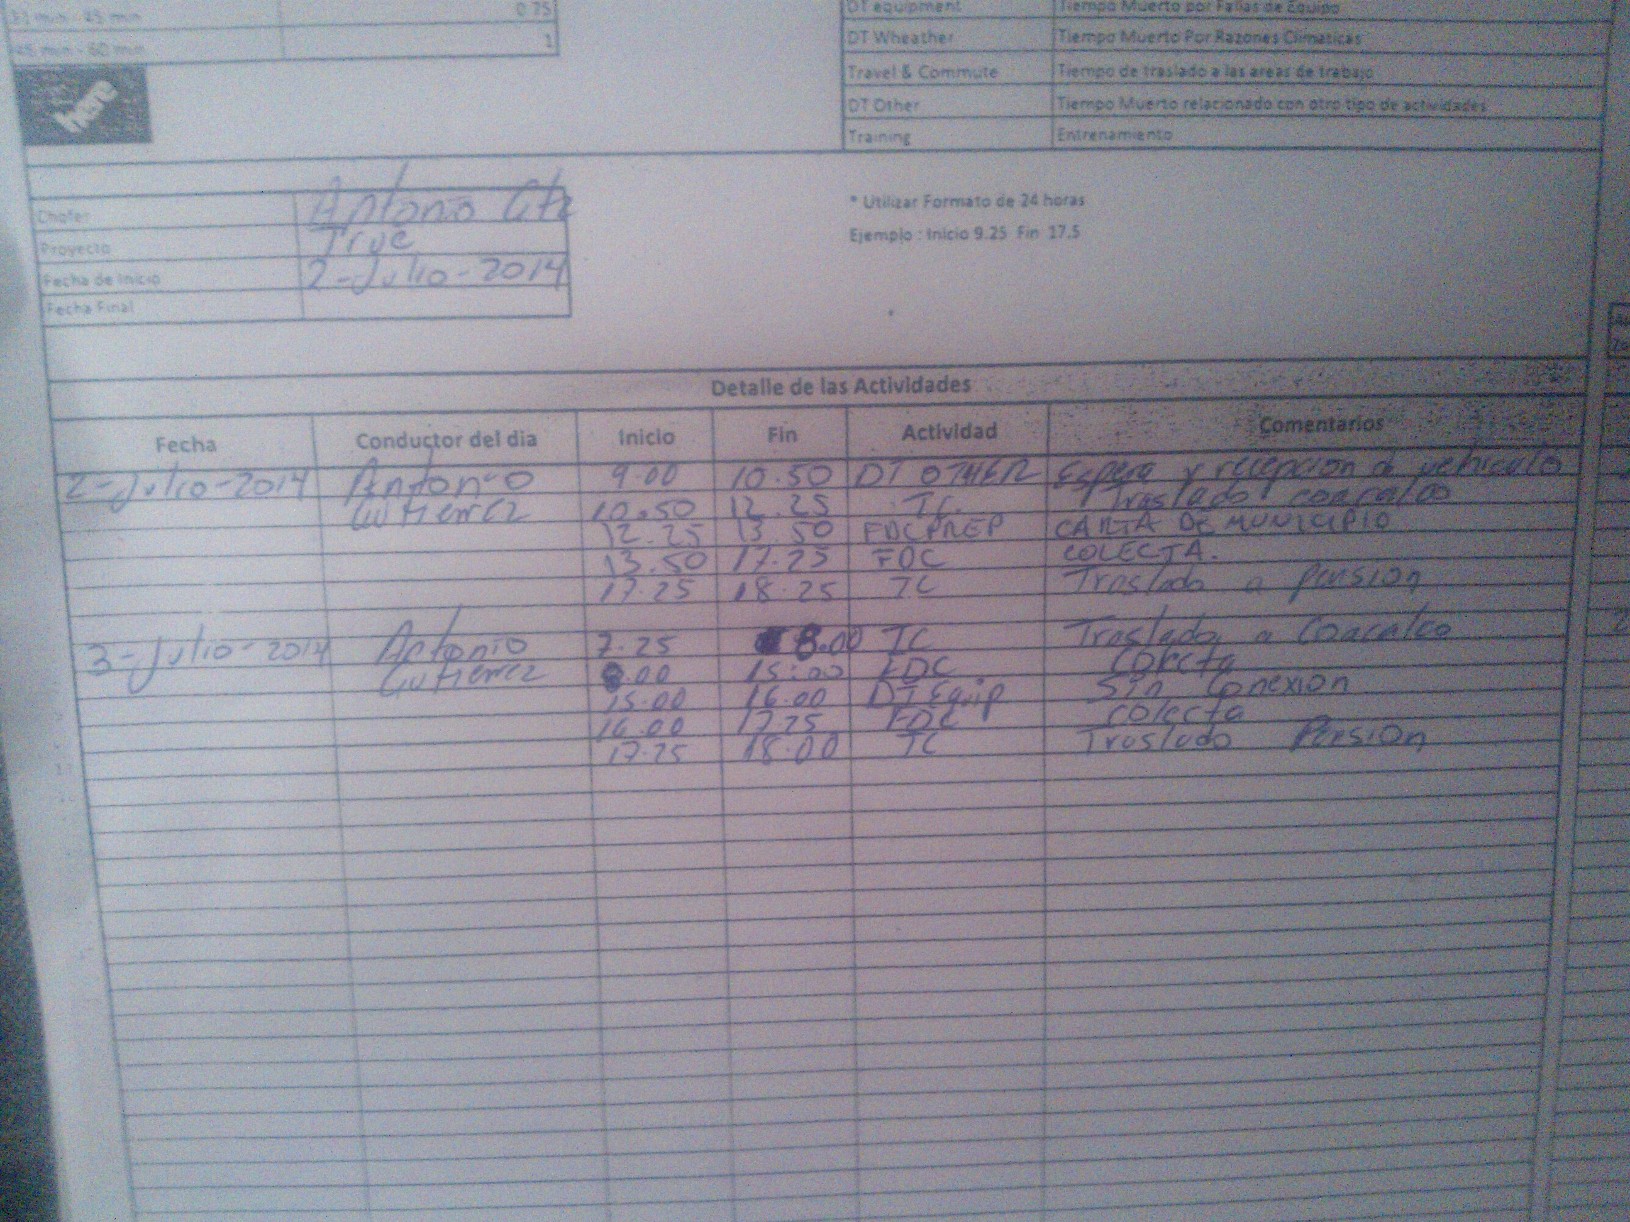 31 min - 45 min 0.75
45 min - 60 min 1
DT equipment Tiempo Muerto por Fallas de Equipo
DT Wheather Tiempo Muerto Por Razones Climaticas
Travel & Commute Tiempo de traslado a las areas de trabajo
DT Other Tiempo Muerto relacionado con otro tipo de actividades
Training Entrenamiento
here
Chofer Antonio Gtz
Proyecto True
Fecha de Inicio 2-Julio-2014
Fecha Final
* Utilizar Formato de 24 horas
Ejemplo : Inicio 9.25 Fin 17.5
Detalle de las Actividades
Fecha Conductor del dia Inicio Fin Actividad Comentarios
2-Julio-2014 Antonio 9.00 10.50 DT OTHER Espera y recepcion de vehiculo
Gutierrez 10.50 12.25 TC. Traslado coacalco
12.25 13.50 FDCPREP CARTA DE MUNICIPIO
13.50 17.25 FDC COLECTA.
17.25 18.25 TC Traslado a Pension
3-Julio-2014 Antonio 7.25 8.00 TC Traslado a Coacalco
Gutierrez 8.00 15:00 FDC Colecta
15.00 16.00 DT Equip Sin Conexion
16.00 17.25 FDC colecta
17.25 18.00 TC Traslado Pension